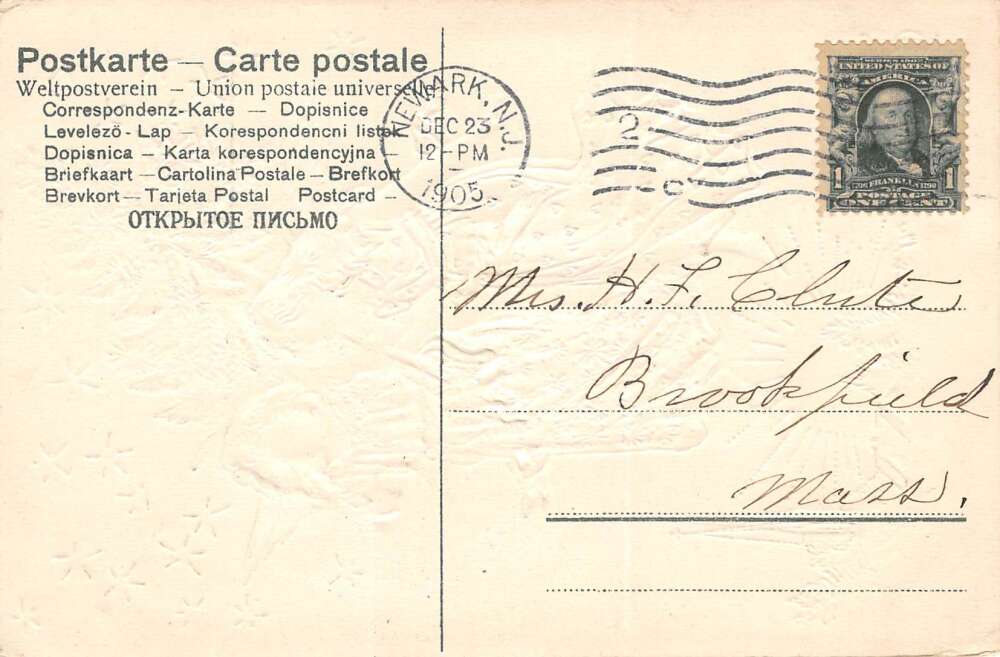 Postkarte — Carte postale
Weltpostverein – Union postale universelle
Correspondenz-Karte — Dopisnice
Levelezö - Lap — Korespondencni listek
Dopisnica — Karta korespondencyjna –
Briefkaart — Cartolina Postale – Brefkort
Brevkort — Tarjeta Postal Postcard –
ОТКРЫТОЕ ПИСЬМО
NEWARK, N.J.
DEC 23
12-PM
1905
2
UNITED STATES OF
AMERICA
1 FRANKLIN 1
POSTAGE
ONE CENT
Mrs. H. F. Clute
Brookfield
Mass.